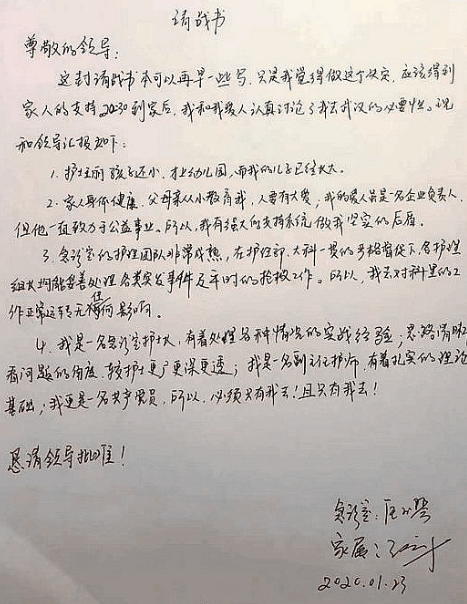 请战书
尊敬的领导：
这封请战书本可以再早一些写，只是我觉得做这个决定，应该得到
家人的支持，20:30到家后，我和我爱人认真讨论了我去武汉的必要性。现
向领导汇报如下：
1. 护士丽 孩子还小，才上幼儿园，而我的儿子已经长大。
2. 家人身体健康，父母亲从小教育我，人要有大爱，我的爱人虽是一名企业负责人，
但他一直致力于公益事业。所以，我有强大的支持系统做我坚实的后盾。
3. 急诊室的护理团队非常成熟，在护理部、大科一贯的严格督促下，各护理
组长均能妥善处理各类突发事件及平时的抢救工作。所以，我去对科里的工
作正常运转无任何影响。
4. 我是一名急诊室护士长，有着处理各种情况的实战经验；思路清晰
看问题的角度，较护士更广更深更透；我是一名副主任护师，有着扎实的理论
基础；我更是一名共产党员，所以，必须只有我去！且只有我去！
恳请领导批准！
急诊室：
家属：
2020.01.23